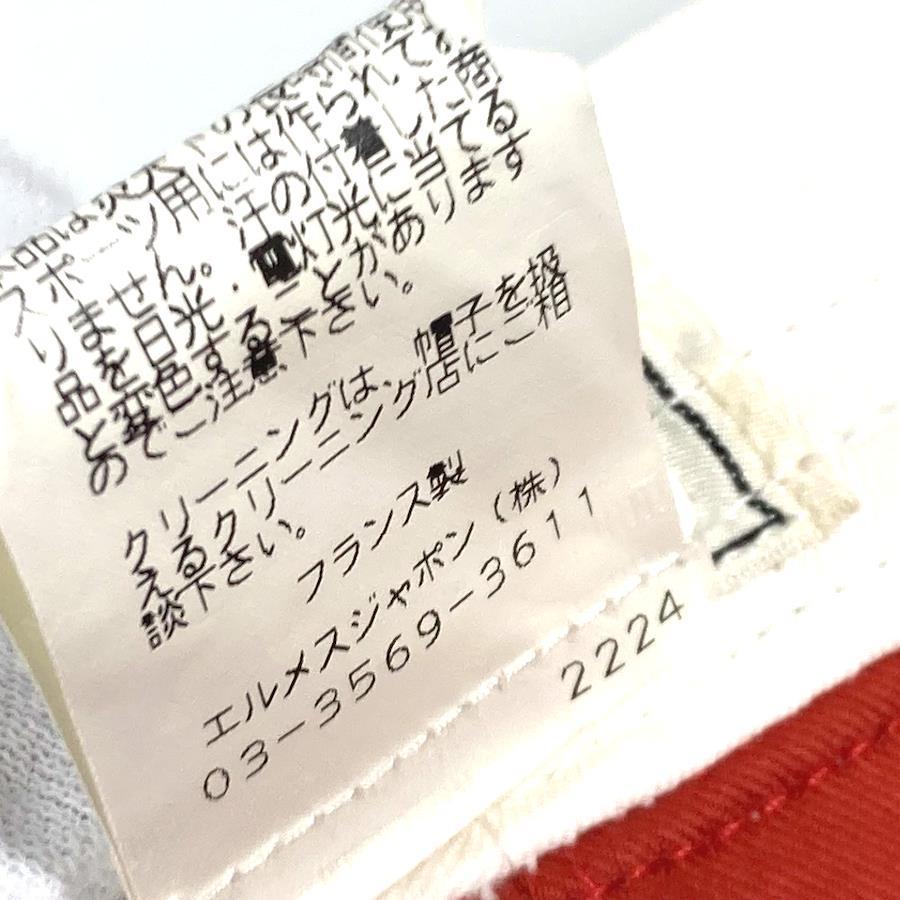 スポーツ用には作られてお
りません。汗の付着した商
品を日光・電灯光に当てる
と変色することがあります
のでご注意下さい。
クリーニングは、帽子を扱
えるクリーニング店にご相
談下さい。
フランス製
エルメスジャポン(株)
03-3569-3611
2224